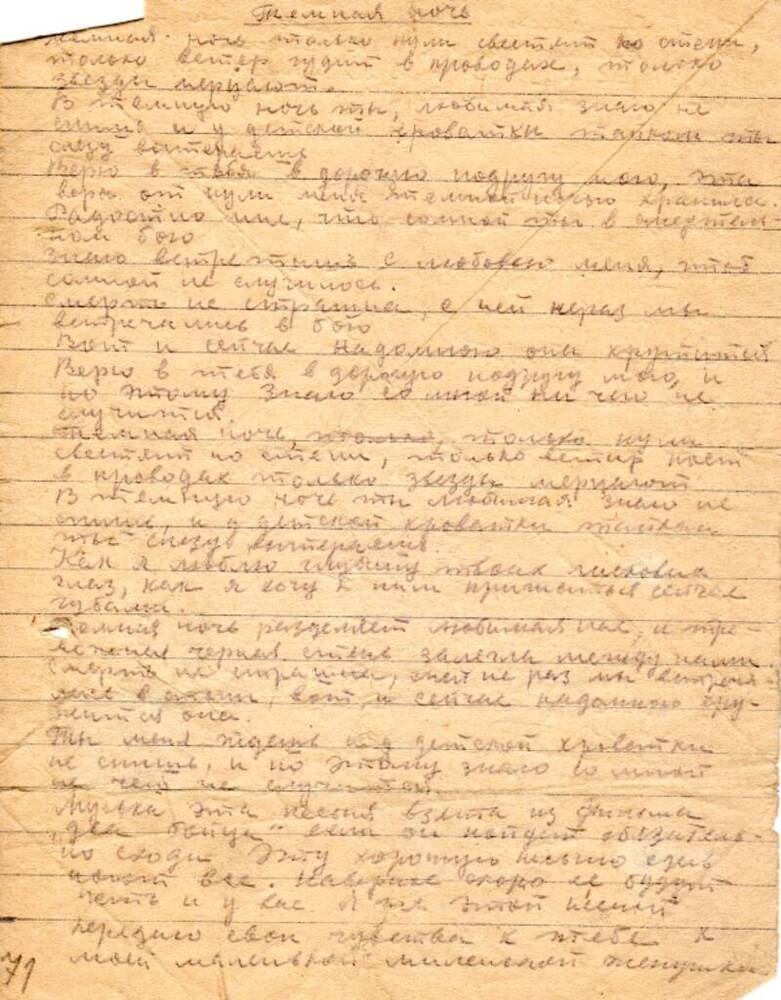 Темная ночь
темная ночь только пули свестят по степи,
только ветер гудит в проводах, только
звезды мерцают.
В темную ночь ты, любимая знаю не
спишь и у детской кроватки тайком ты
слезу вытераешь
Верю в тебя в дорогую подругу мою, эта
вера от пули меня темной ночью хранила.
Радостно мне, что сомной ты в смертель
ном бою
Знаю встретишь с любовью меня, чтоб
сомной не случилось.
Смерть не страшна, с ней нераз мы
встречались в бою
Вот и сейчас надомною она крутится
Верю в тебя в дорогую подругу мою, и
по этому знаю со мной ни чего не
случится.
темная ночь, только, только пули
свестят по степи, только ветер поет
в проводах только звезды мерцают
В темную ночь ты любимая знаю не
спишь, и у детской кроватки тайком
ты слезу вытераешь.
Как я люблю глубину твоих ласковых
глаз, как я хочу к ним прижаться сейчас
губами.
Темная ночь разделяет любимая нас, и тре-
вожная черная степь залегла между нами
Смерть не страшна, с ней не раз мы встреча-
лись в степи, вот и сейчас надомною кру-
жится она.
Ты меня ждешь и у детской кроватки
не спишь, и по этому знаю со мной
не чего не случится.
Мулька эта песня взята из фильма
„два бойца" если он пойдет обязатель-
но сходи. Эту хорошую песню здесь
поют все. Наверное скоро ее будут
петь и у вас. Я же этой песней
передаю свои чувства к тебе к
моей маленькой миленькой женушки
71